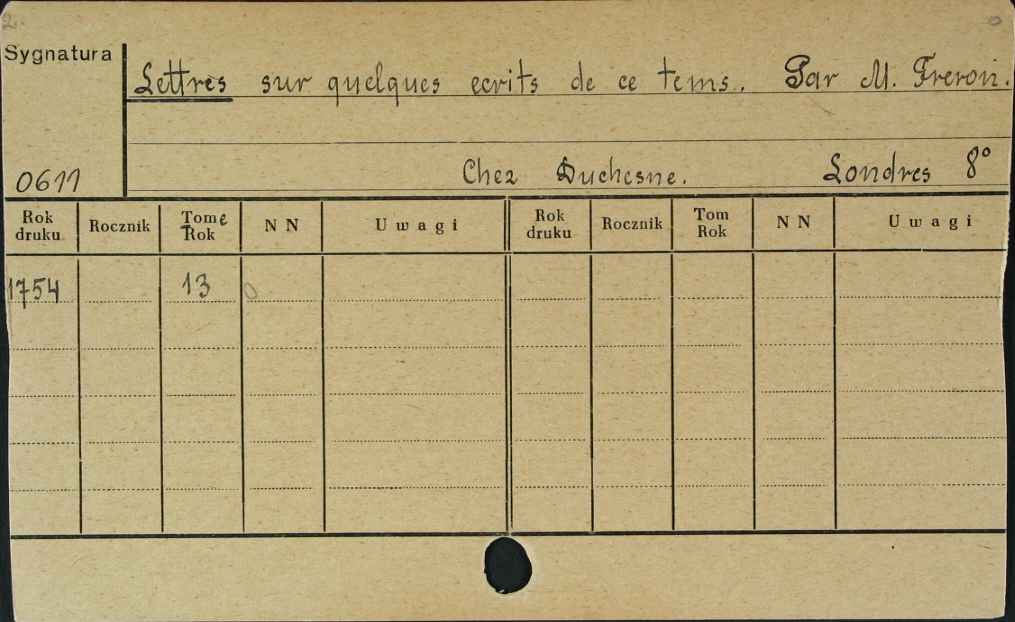 2.
Sygnatura
Lettres sur quelques ecrits de ce tems. Par M. Freron.
Chez Duchesne. Londres 8°
0611
Rok druku Rocznik Tome Rok N N Uwagi Rok druku Rocznik Tom Rok N N Uwagi
1754 13 0